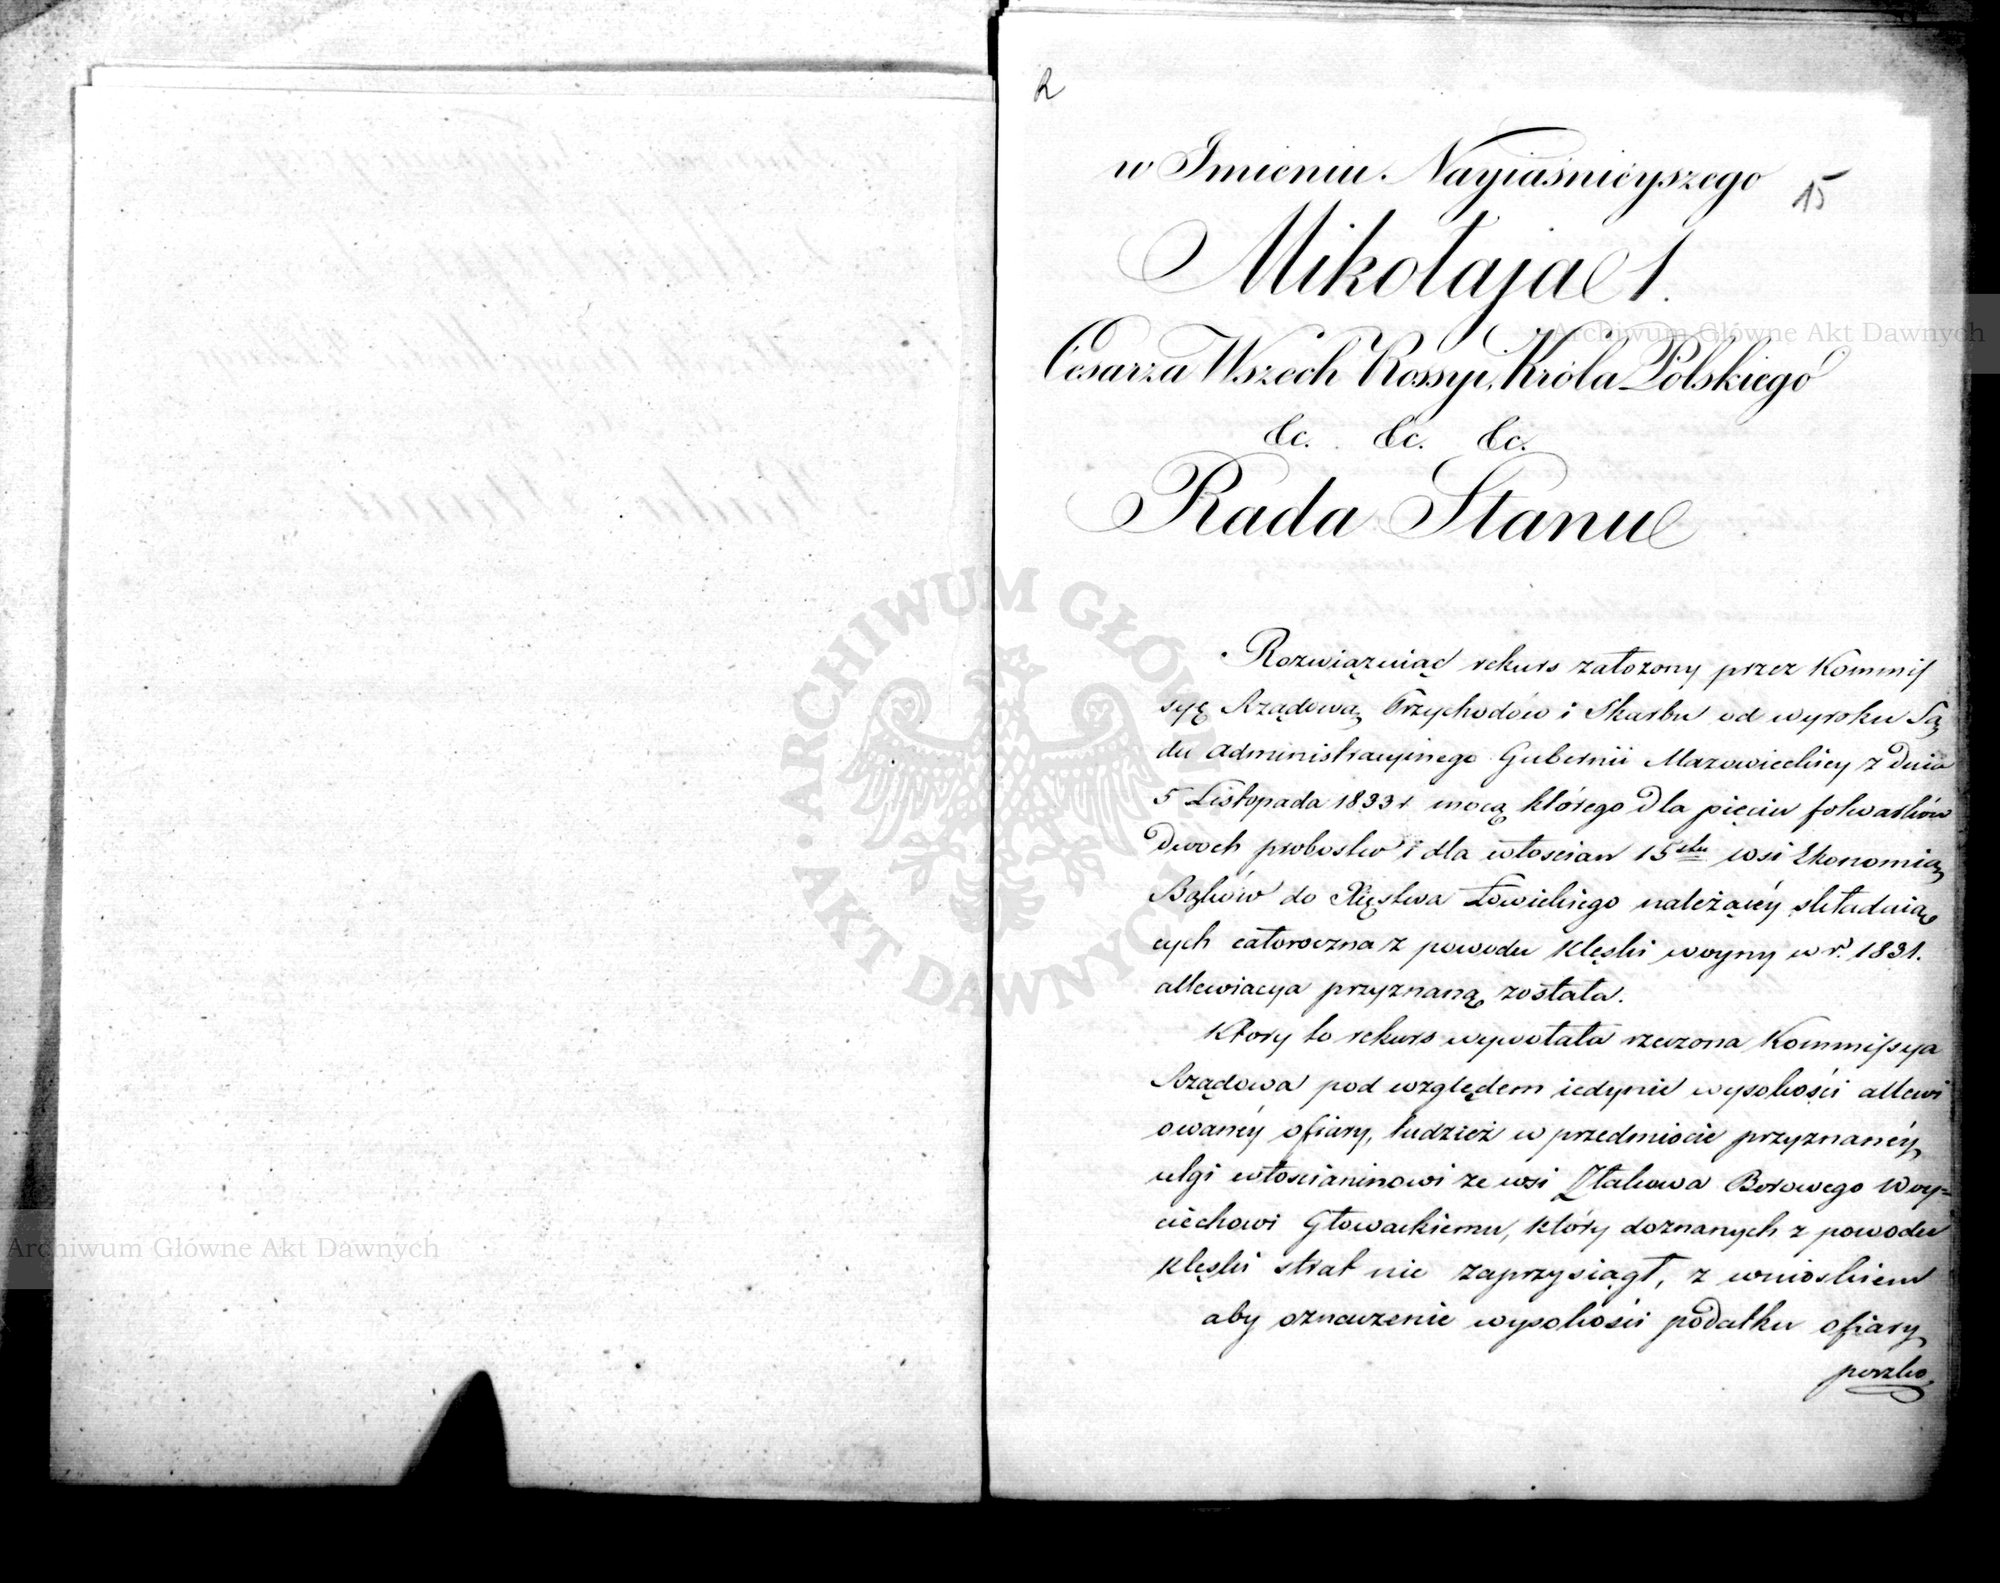 R
15
w Imieniu Nayiaśnieyszego
Mikołaja 1.
Cesarza Wszech Rossyi, Króla Polskiego
&c. &c. &c.
Rada Stanu
Rozwiązuiąc rekurs założony przez Kommis
syę Rządową Przychodów i Skarbu od wyroku Są
du Administracyjnego Gubernii Mazowieckiey z dnia
5 Listopada 1833 r mocą którego dla pięciu folwarków
dwoch probostw i dla włoscian 15stu wsi Ekonomią
Bąków do Xięstwa Łowickiego należącéy składaią
cych całoroczna z powodu klęski woyny w r. 1831.
allewiacya przyznaną została.
Ktory to rekurs wywołała rzeczona Kommissya
Rządowa pod względem iedynie wysokości allewi
owanéy ofiary, tudzież w przedmiocie przyznanéy
ulgi włoscianinowi ze wsi Złakowa Borowego Woy=
ciechowi Głowackiemu, który doznanych z powodu
klęski strat nie zaprzysiągł, z wnioskiem
aby oznaczenie wysokości podatku ofiary
Archiwum Główne Akt Dawnych
Archiwum Główne Akt Dawnych
ARCHIWUM GŁÓWNE AKT DAWNYCH